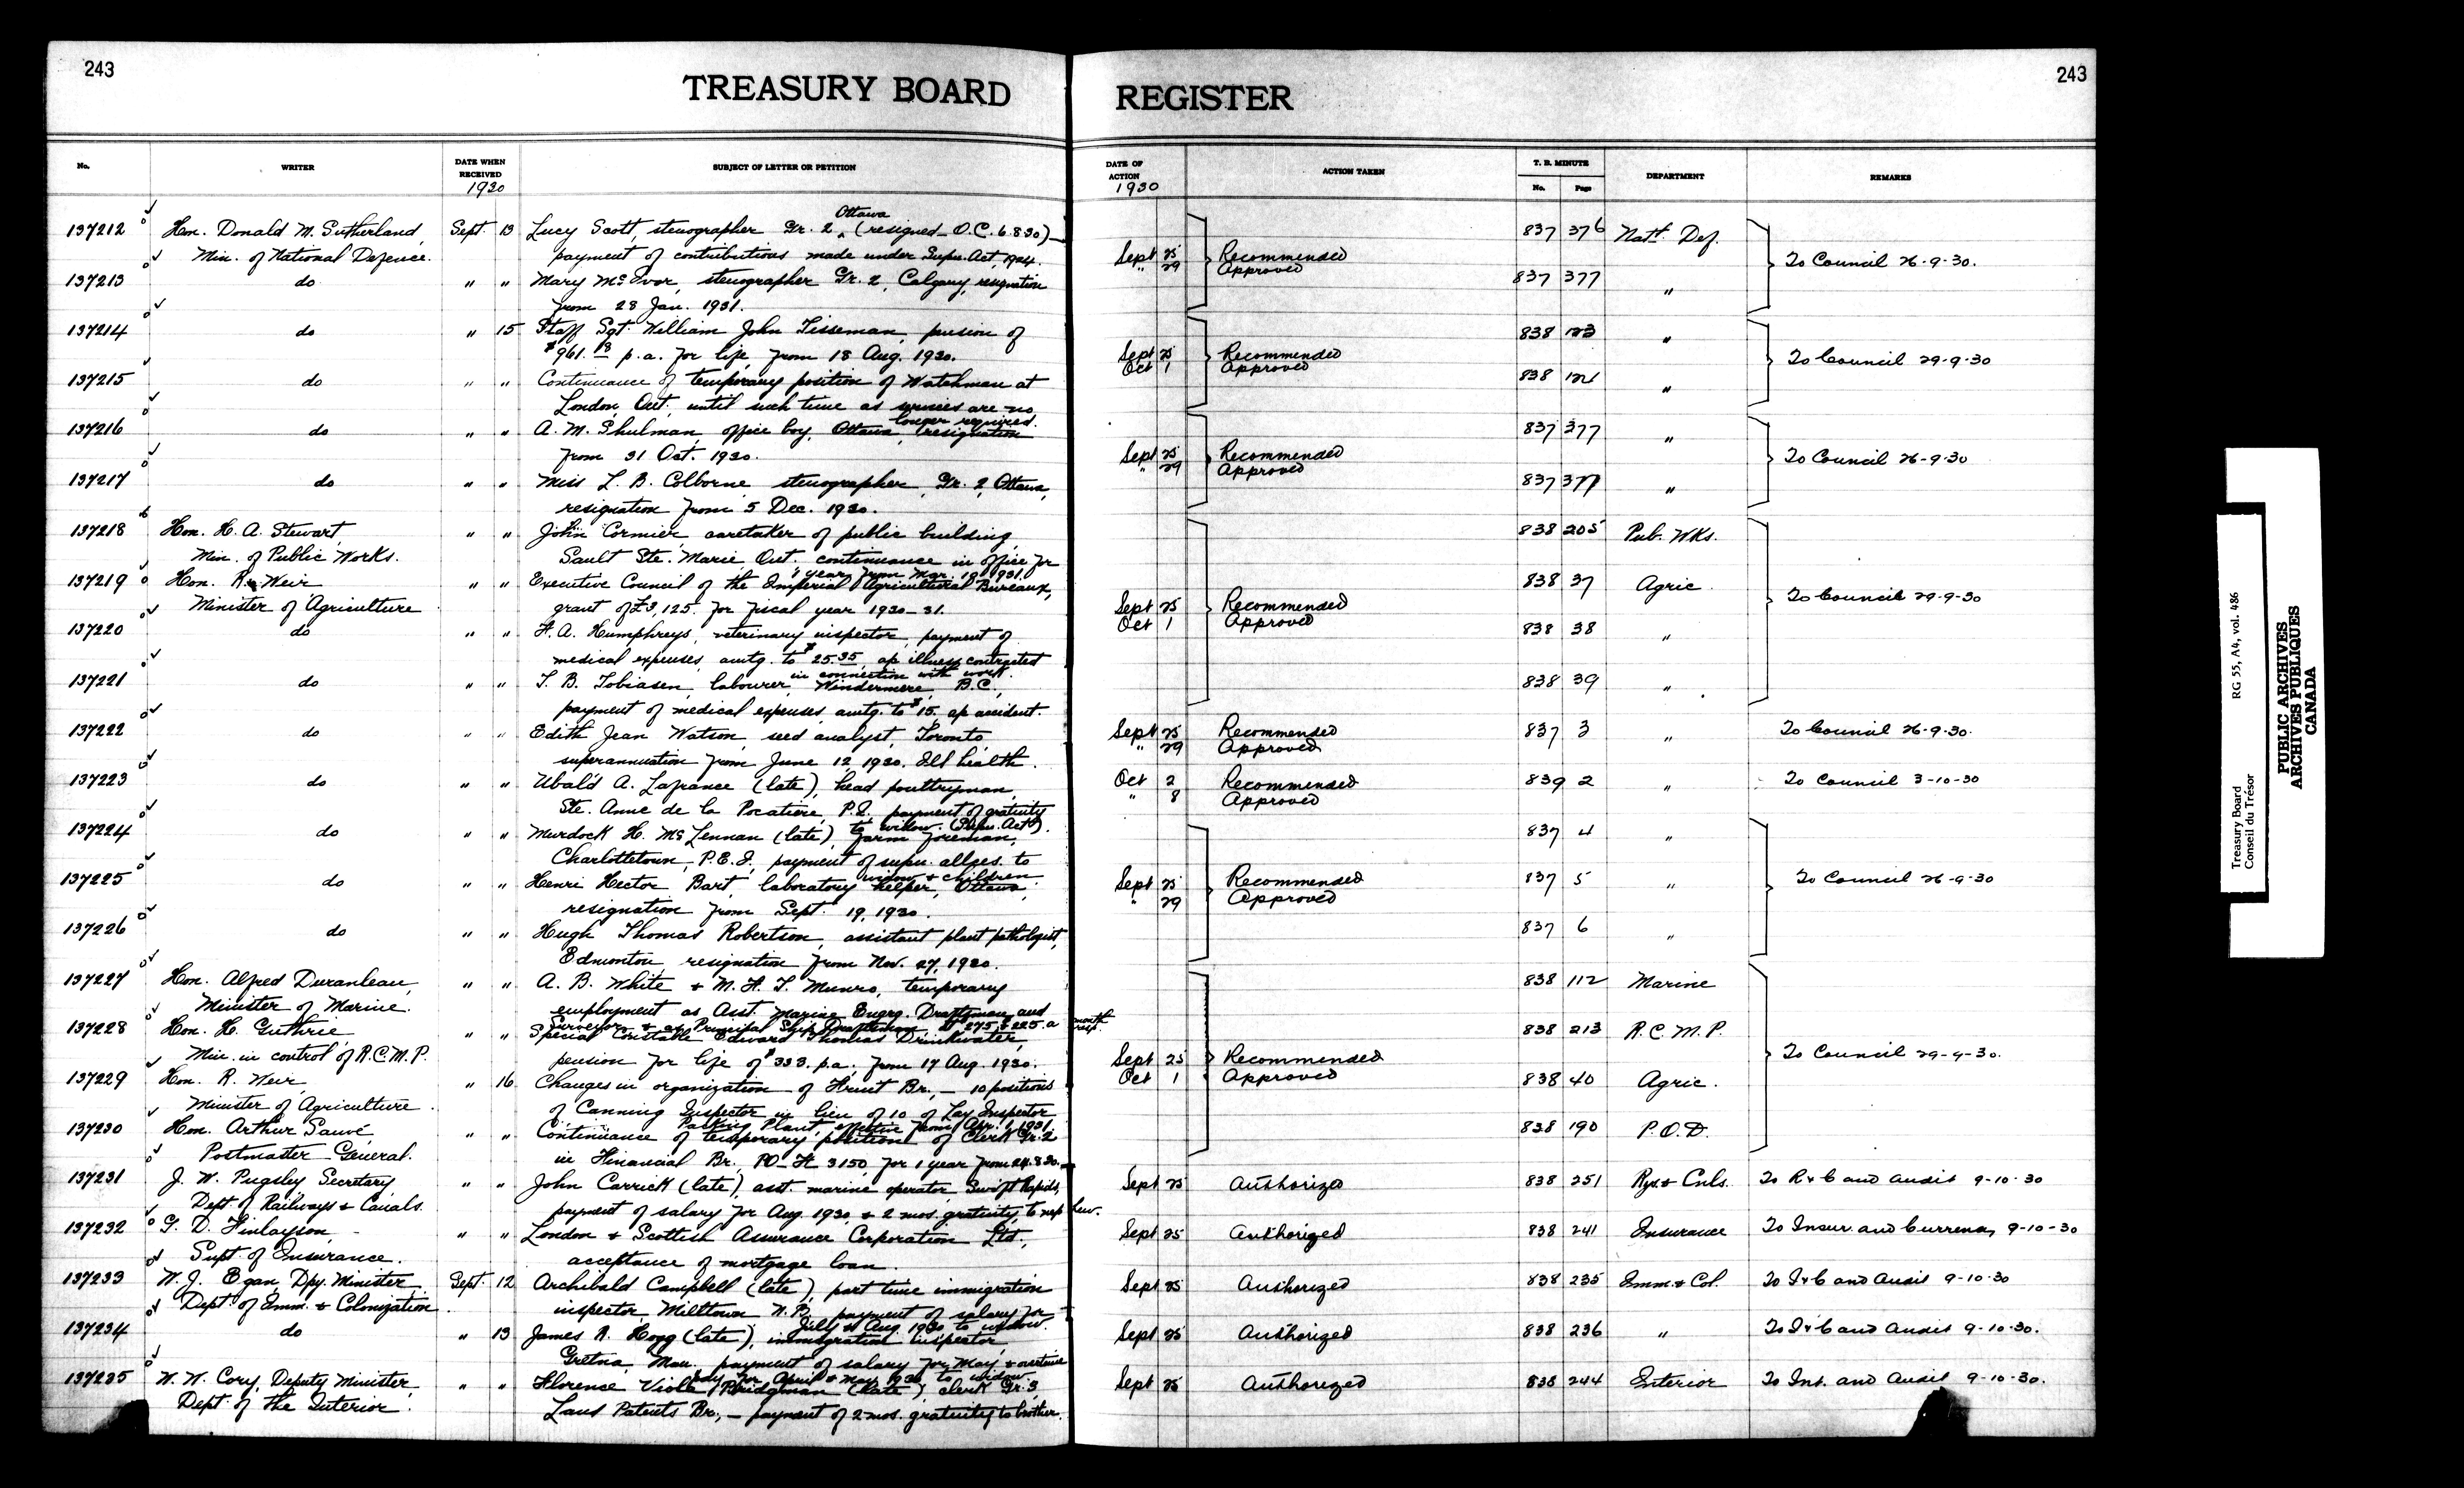 243
TREASURY BOARD
REGISTER
243
No.
WRITER
DATE WHEN RECEIVED
1930
SUBJECT OF LETTER OR PETITION
DATE OF ACTION
1930
ACTION TAKEN
T. B. MINUTE
No.
Page
DEPARTMENT
REMARKS
137212 Hon. Donald M. Sutherland, Sept. 13 Lucy Scott stenographer Gr. 2, Ottawa (resigned O.C. 6.8.30) 837 376 Natl. Def.
Min. of National Defence. payment of contributions made under Supn. Act, 1924. Sept 25 Recommended To Council 26-9-30.
" 29 Approved
137213 do " " Mary McIvor, stenographer Gr. 2, Calgary, resignation 837 377 "
from 28 Jan. 1931.
137214 do " 15 Staff Sgt. William John Tisseman, pension of 838 123 "
$961.18 p.a. for life, from 18 Aug. 1930. Sept 25 Recommended To Council 29-9-30
Oct 1 Approved
137215 do " " Continuance of temporary position of Watchman at 838 121 "
London, Ont., until such time as services are no
longer required.
137216 do " " A. M. Shulman, office boy, Ottawa, resignation 837 377 "
from 31 Oct. 1930. Sept 25 Recommended To Council 26-9-30
" 29 Approved
137217 do " " Miss L. B. Colborne stenographer, Gr. 2, Ottawa, 837 377 "
resignation from 5 Dec. 1930.
137218 Hon. H. A. Stewart, " " John Cormier caretaker of public building, 838 205 Pub. Wks.
Min. of Public Works. Sault Ste. Marie Ont. continuance in office for
1 year from Mar. 19 1931.
137219 Hon. R. Weir " " Executive Council of the Imperial Agricultural Bureaux, 838 37 Agric.
Minister of Agriculture grant of £3,125. for fiscal year 1930-31. Sept 25 Recommended To Council 29-9-30
Oct 1 Approved
137220 do " " F. A. Humphreys, veterinary inspector, payment of 838 38 "
medical expenses, amtg. to $25.35, ap illness contracted
in connection with work.
137221 do " " T. B. Tobiasen, labourer, Windermere, B.C., 838 39 "
payment of medical expenses amtg. to $15. ap accident.
137222 do " " Edith Jean Watson, seed analyst, Toronto, Sept 25 Recommended 837 3 " To Council 26-9-30.
superannuation from June 12, 1930. Ill health. " 29 Approved
137223 do " " Ubald A. Lafrance (late), head poultryman, Oct 2 Recommended 839 2 " To Council 3-10-30
Ste. Anne de la Pocatiere, P.Q. payment of gratuity " 8 Approved
to widow. (Supn. Act).
137224 do " " Murdock H. McLennan (late), farm foreman, 837 4 "
Charlottetown, P.E.I., payment of supn. allces. to
widow & children.
137225 do " " Henri Hector Bart, laboratory helper, Ottawa, Sept 25 Recommended 837 5 " To Council 26-9-30
resignation from Sept. 19, 1930. " 29 Approved
137226 do " " Hugh Thomas Robertson, assistant plant pathologist, 837 6 "
Edmonton, resignation from Nov. 27, 1930.
137227 Hon. Alfred Duranleau, " " A. B. White & M. H. T. Munro, temporary 838 112 Marine
Minister of Marine. employment as Asst. Marine Engrg. Draftsman and
Surveyor & as Principal Ship Draftsman at $275 & $225 a month resp.
137228 Hon. H. Guthrie " " Special Constable Edward Thomas Drinkwater, 838 213 R.C.M.P.
Min. in control of R.C.M.P. pension for life of $333. p.a., from 17 Aug. 1930. Sept 25 Recommended To Council 29-9-30.
137229 Hon. R. Weir, " 16 Changes in organization of Fruit Br., — 10 positions Oct 1 Approved 838 40 Agric.
Minister of Agriculture of Canning Inspector in lieu of 10 of Lay Inspector
Packing Plant, effective from Apr. 1, 1931.
137230 Hon. Arthur Sauvé " " Continuance of temporary position of Clerk Gr. 2 838 190 P.O.D.
Postmaster General. in Financial Br., PO-H 3150, for 1 year from 24.8.30.
137231 J. W. Pugsley Secretary " " John Carrick (late), asst. marine operator Swift Rapids, Sept 25 Authorized 838 251 Rys. & Cnls. To R & C and Audit 9-10-30
Dept. of Railways & Canals. payment of salary for Aug. 1930 & 2 mos. gratuity to nephew.
137232 G. D. Finlayson, " " London & Scottish Assurance Corporation Ltd., Sept 25 Authorized 838 241 Insurance To Insur. and Currency 9-10-30
Supt. of Insurance. acceptance of mortgage loan.
137233 W. J. Egan, Dpy. Minister Sept. 12 Archibald Campbell (late), part time immigration Sept 25 Authorized 838 235 Imm. & Col. To I & C and Audit 9-10-30
Dept. of Imm. & Colonization inspector, Milltown N.B., payment of salary for
July & Aug. 1930 to widow.
137234 do " 13 James R. Hogg (late), immigration inspector, Sept 25 Authorized 838 236 " To I & C and Audit 9-10-30.
Gretna, Man., payment of salary for May, & overtime
only for April & May 1930 to widow.
137235 W. W. Cory, Deputy Minister, " " Florence Viola Bridgman (late) clerk Gr. 3, Sept 25 Authorized 838 244 Interior To Int. and Audit 9-10-30.
Dept. of the Interior. Land Patents Br., — payment of 2 mos. gratuity to brother.
Treasury Board RG 55, A4, vol. 486
Conseil du Trésor
PUBLIC ARCHIVES
ARCHIVES PUBLIQUES
CANADA